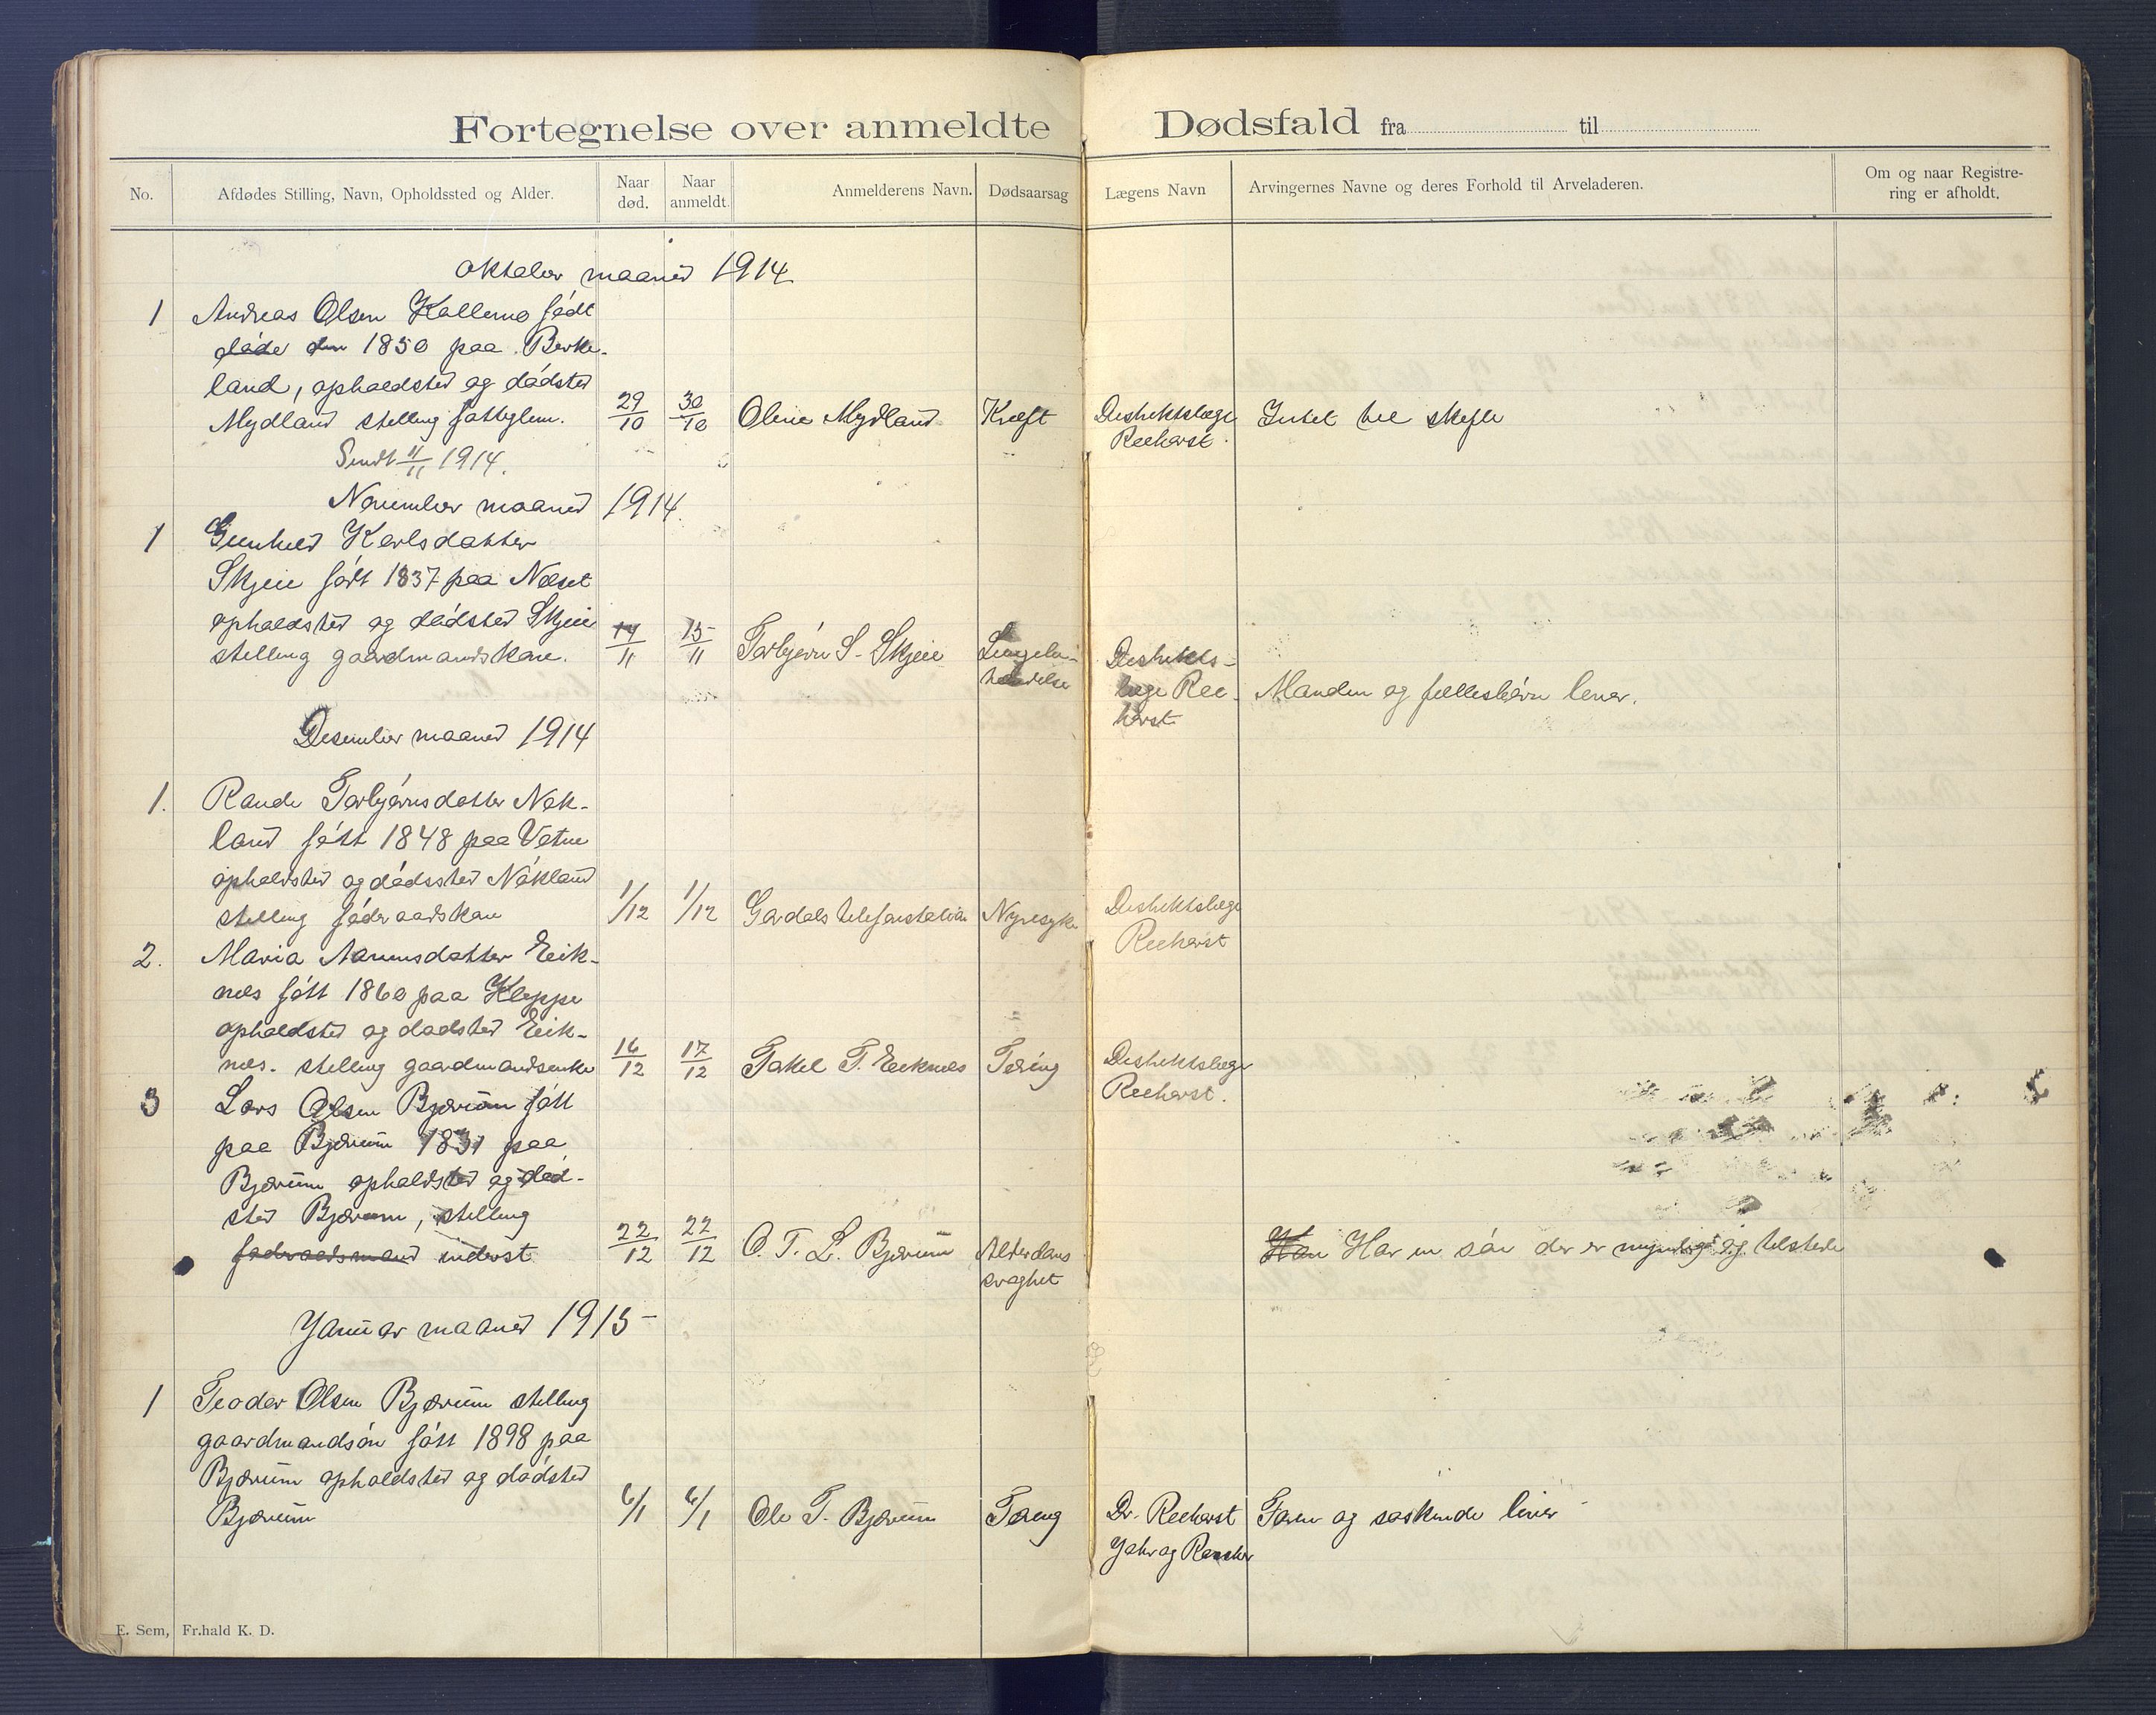 Fortegnelse over anmeldte Dødsfald fra til
No.
Afdødes Stilling, Navn, Opholdssted og Alder.
Naar død.
Naar anmeldt.
Anmelderens Navn.
Dødsaarsag
Lægens Navn
Arvingernes Navne og deres Forhold til Arveladeren.
Om og naar Registre-
ring er afholdt.
oktober maaned 1914
1 Andreas Olsen født
1850 paa Berke-
land, opholdsted og dódsted
Mydland stelling fattiglem. 29/10 30/10 Oline Mydland Kræft Destriktslæge Intet til skifte
Reehorst.
Sendt 11/11 1914.
November maaned 1914.
1 Gunhild Karlsdatter
Skjeie fódt 1837 paa Næset
opholdsted og dódsted Skjeie
stelling gaardmandskone. 14/11 15/11 Torbjórn S. Skjeie Lungebe-
tændelse
Destrikts-
læge Ree-
horst
Manden og fellesbórn lever.
Desember maaned 1914
1. Rande Torbjórnsdatter Nók-
land fótt 1848 paa Vatne
opholdsted og dódssted Nókland
stelling fóderaadskone 1/12 1/12 Gardals telefonstation Nyresyke Destriktslæge
Reehorst
2. Maria Aanensdatter Eik-
næs fótt 1860 paa Kleppe
opholdsted og dodsted Eik-
næs. stelling gaardmandsenke 16/12 17/12 Takel T. Eeiknes Tæring Destriktslæge
Reehorst.
3 Lars Olsen Bjærum fótt
paa Bjærum 1831 paa
Bjærum opholdsted og dód-
sted Bjærum, stelling
foderaadsmand inderst 22/12 22/12 O. T. L. Bjærum Alderdoms
svaghet
Han Har en són der er myndig og telstede
Januar maaned 1915
1 Teodor Olsen Bjærum stelling
gaardmandsón fótt 1898 paa
Bjærum opholdsted og dódsted
Bjærum 6/1 6/1 Ole T. Bjærum Tæring Dr. Reehorst Faren og soskende lever
E. Sem, Fr.hald K. D.